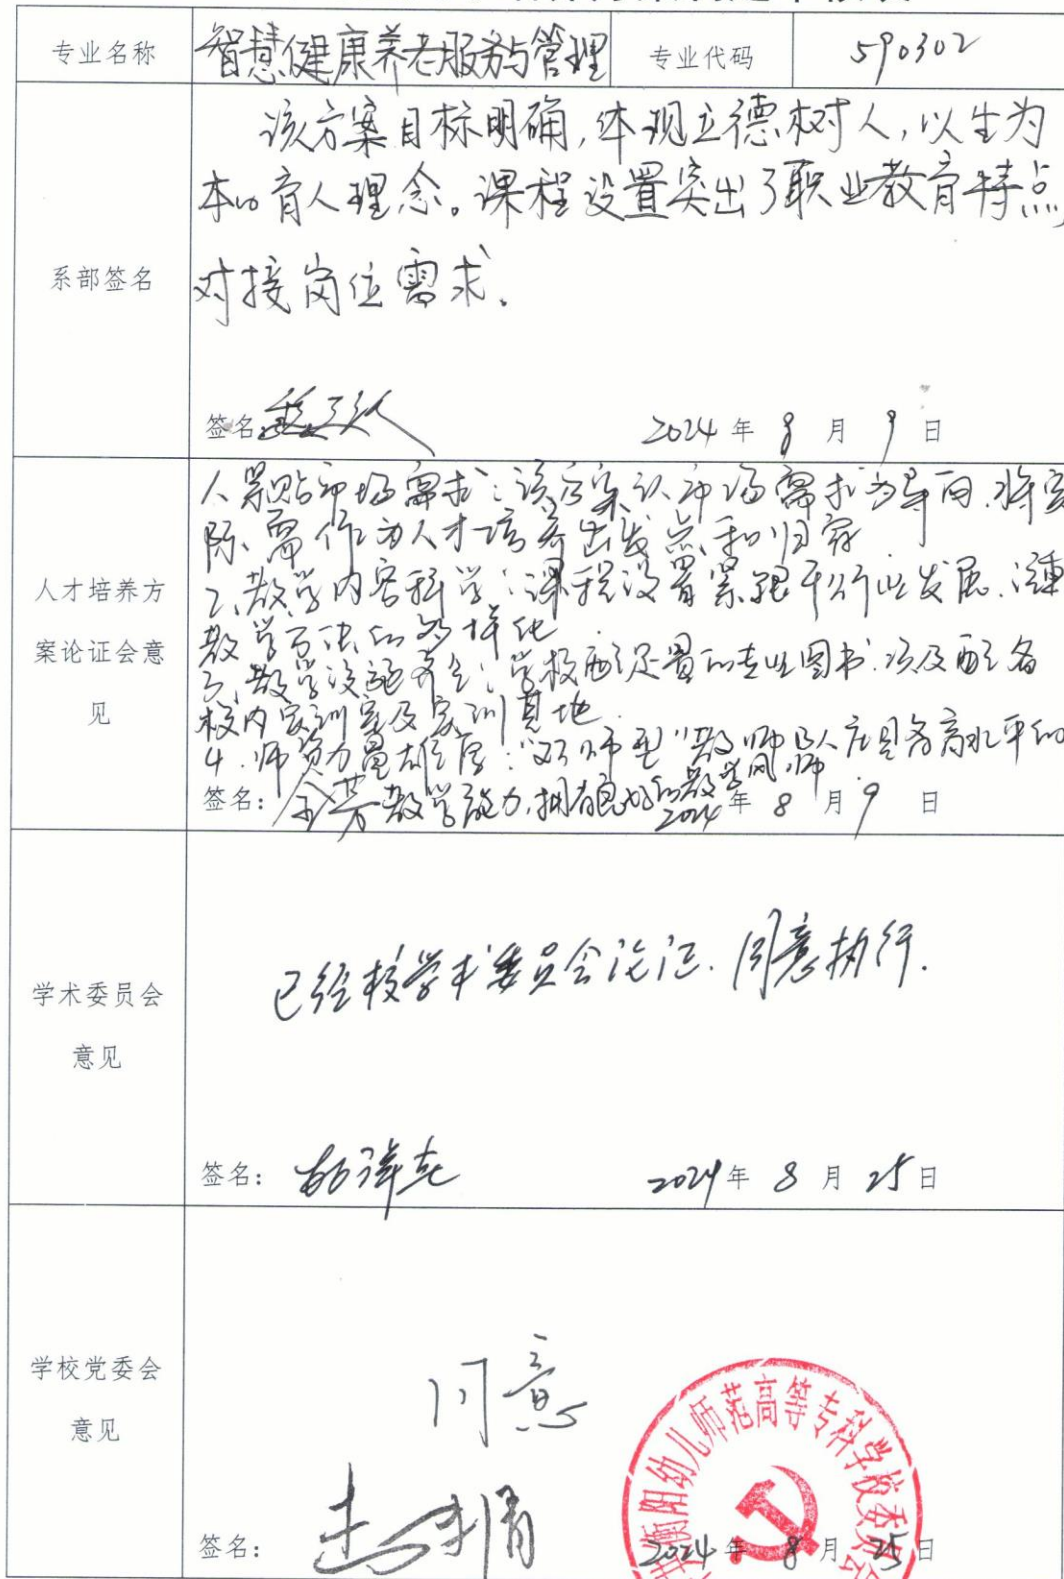 专业名称 智慧健康养老服务与管理 专业代码 590302
系部签名
该方案目标明确,体现立德树人,以生为
本的育人理念。课程设置突出了职业教育特点
对接岗位需求.
签名 2024年8月9日
人才培养方
案论证会意
见
1.紧贴市场需求:该方案以市场需求为导向.将实
际需作为人才培养出发点和归宿
2、教学内容科学:课程设置紧跟平行业发展.注重
教学方法的多样化
3、教学设施齐全:学校配足量的专业图书.以及配备
校内实训室及实训基地
4.师资力量雄厚:"双师型"教师队伍具备高水平的
教学能力,拥有良好的教学风
签名: 2024年8月9日
学术委员会
意见
已经校学术委员会论证.同意执行.
签名: 2024年8月25日
学校党委会
意见
同意
衡阳幼儿师范高等专科学校委员会
签名: 2024年8月25日